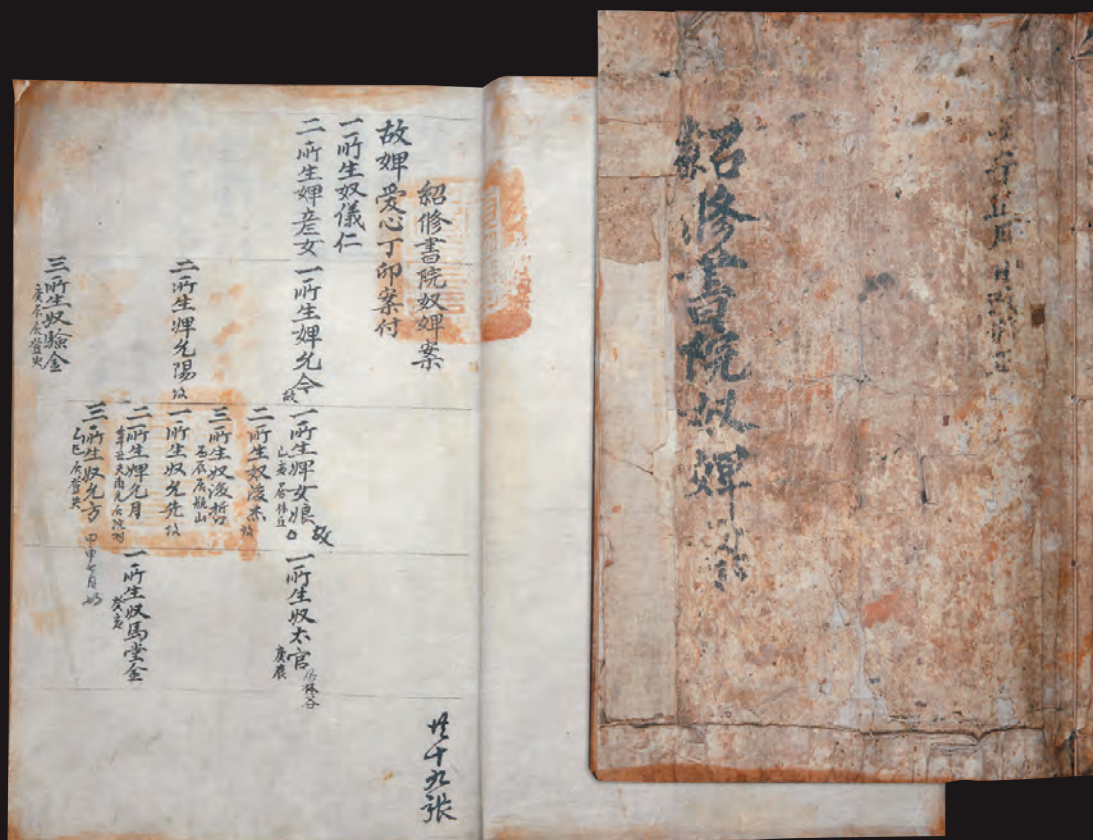 紹修書院奴婢案
紹修書院奴婢案
故婢愛心丁卯案付
一所生奴儀仁
二所生婢彦女
一所生婢允令 故
一所生婢女娘 故
一所生奴太官
庚辰
二所生奴浚杰 故
三所生奴浚哲
丙辰居瓶山
二所生婢允陽 故
一所生奴允先 故
二所生婢允月
一所生奴馬堂金
癸亥
三所生奴允方 甲申七月
三所生奴驗金
廿十九張